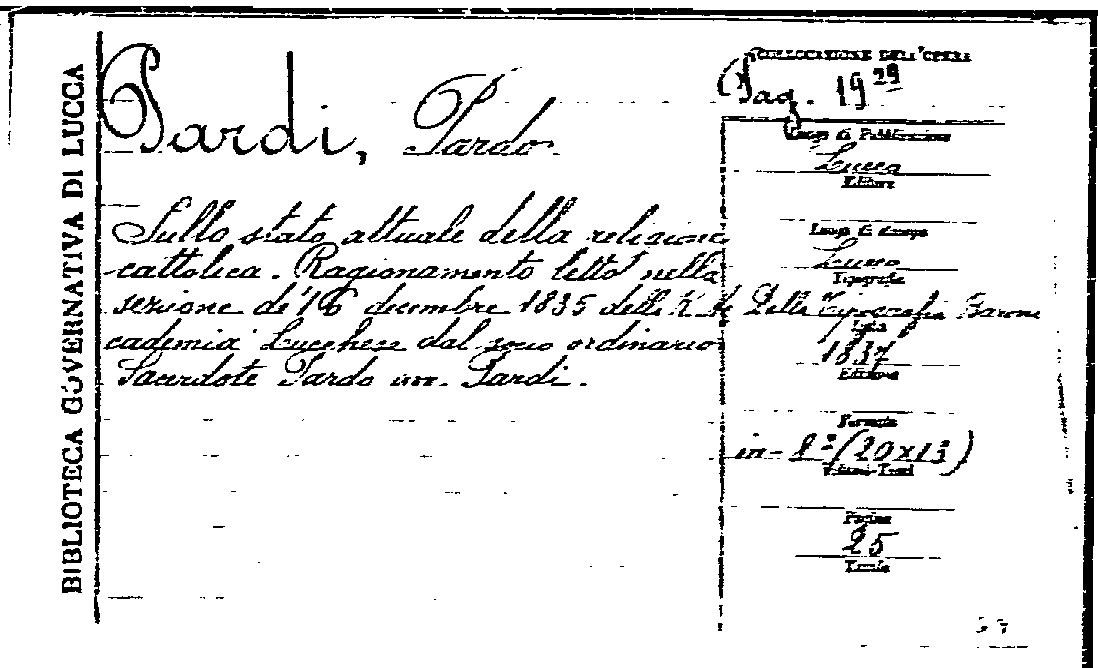 BIBLIOTECA GOVERNATIVA DI LUCCA
COLLOCAZIONE DELL'OPERA
Pag. 19 29
Pardi, Pardo
Sullo stato attuale della religione
cattolica. Ragionamento letto nella
sezione de' 16 decembre 1835 della R. Ac
cademia Lucchese dal socio ordinario
Sacerdote Pardo can. Pardi.
Luogo di Pubblicazione
Lucca
Editore
Luogo di stampa
Lucca
Tipografia
Dalla Tipografia Baroni
Data
1837
Edizione
Formato
in-8° (20x13)
Volumi-Tomi
Pagine
25
Tavole